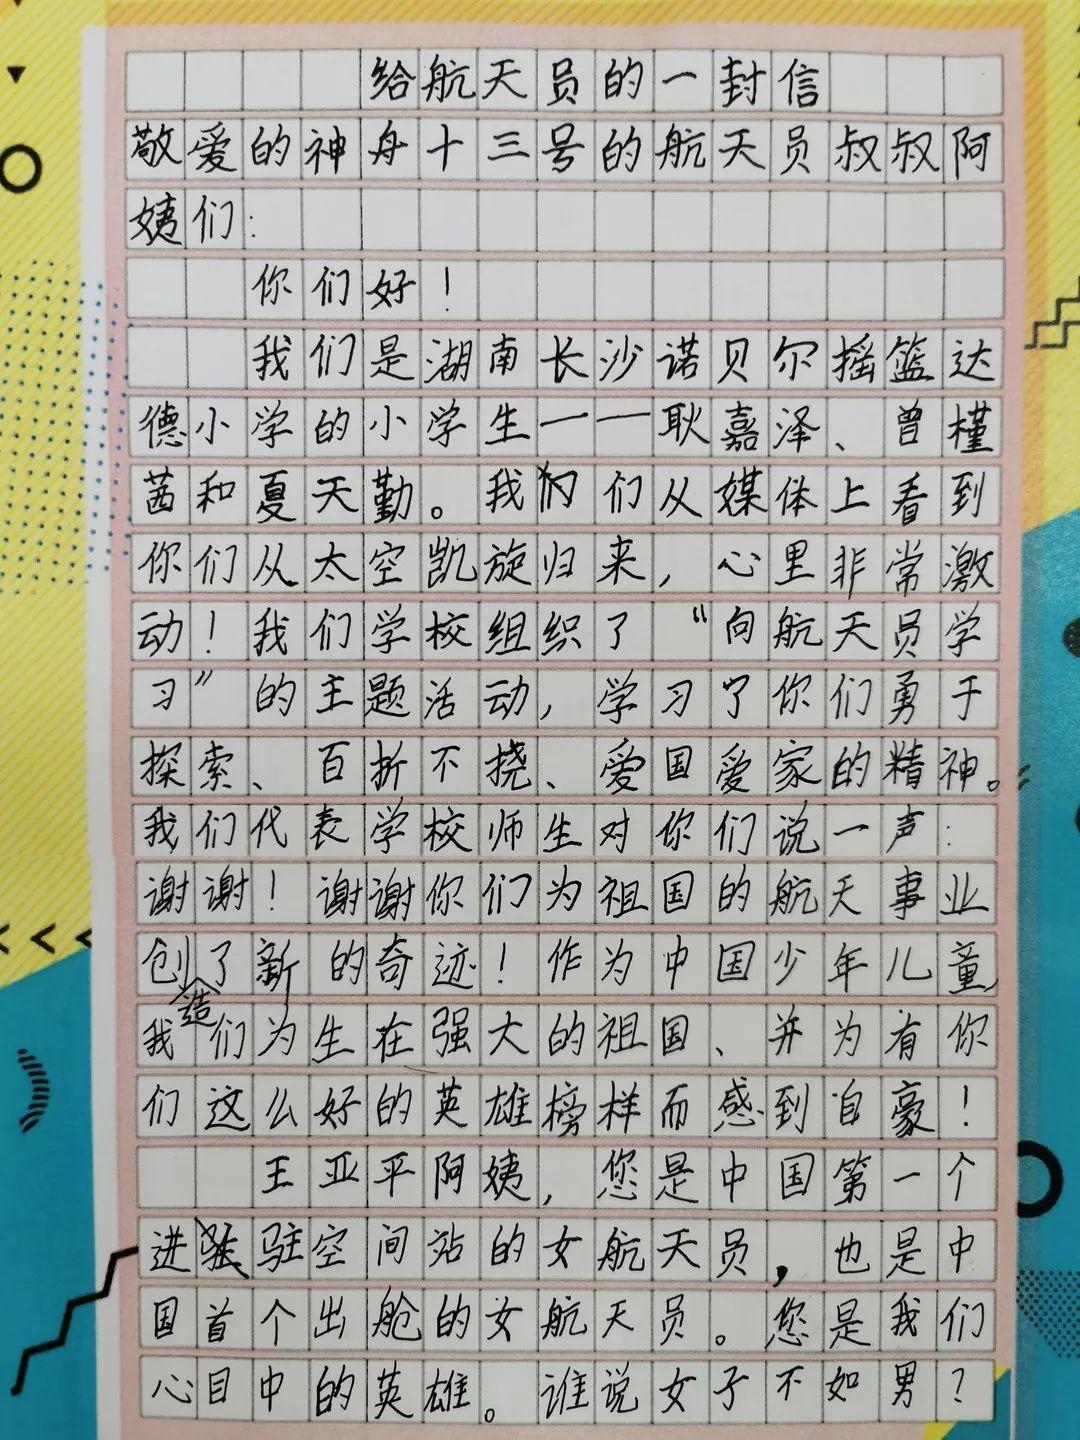 给航天员的一封信
敬爱的神舟十三号的航天员叔叔阿
姨们：
你们好！
我们是湖南长沙诺贝尔摇篮达
德小学的小学生——耿嘉泽、曾槿
茜和夏天勤。我们从媒体上看到
你们从太空凯旋归来，心里非常激
动！我们学校组织了“向航天员学
习”的主题活动，学习了你们勇于
探索、百折不挠、爱国爱家的精神。
我们代表学校师生对你们说一声：
谢谢！谢谢你们为祖国的航天事业
创造了新的奇迹！作为中国少年儿童，
我们为生在强大的祖国、并为有你
们这么好的英雄榜样而感到自豪！
王亚平阿姨，您是中国第一个
进驻空间站的女航天员，也是中
国首个出舱的女航天员。您是我们
心目中的英雄。谁说女子不如男？